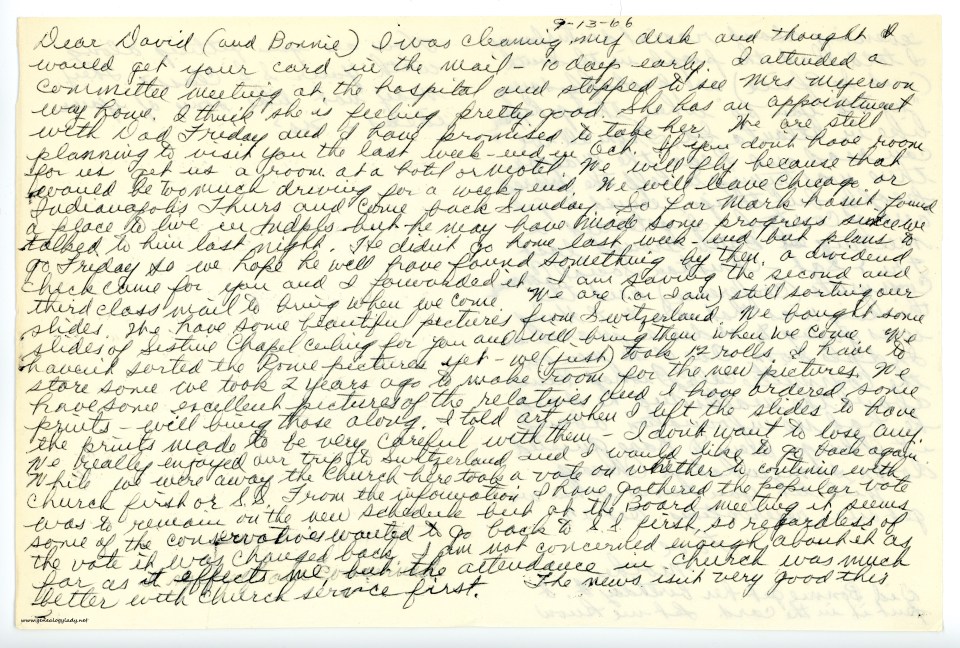 9-13-66
Dear David (and Bonnie) I was cleaning my desk and thought I
would get your card in the mail - 10 days early. I attended a
Committee meeting at the hospital and stopped to see Mrs Myers on
way home. I think she is feeling pretty good. She has an appointment
with Dad Friday and I have promised to take her. We are still
planning to visit you the last week-end in Oct. If you don't have room
for us get us a room at a hotel or motel. We will fly because that
would be too much driving for a week-end. We will leave Chicago or
Indianapolis Thurs and come back Sunday. So far Mark hasn't found
a place to live in Indpls but he may have made some progress since we
talked to him last night. He didn't go home last week-end but plans to
go Friday so we hope he will have found something by then. a dividend
check came for you and I forwarded it. I am saving the second and
third class mail to bring when we come. We are (or I am) still sorting our
slides. We have some beautiful pictures from Switzerland. We bought some
slides of Sistine Chapel ceiling for you and will bring them when we come. We
haven't sorted the Rome pictures yet - we (just) took 12 rolls. I have to
store some we took 2 years ago to make room for the new pictures. We
have some excellent pictures of the relatives and I have ordered some
prints - will bring those along. I told art when I left the slides to have
the prints made to be very careful with them - I don't want to lose any.
We really enjoyed our trip to Switzerland and I would like to go back again.
While we were away the Church here took a vote on whether to continue with
church first or S.S. From the information I have gathered the popular vote
was to remain on the new schedule but at the Board meeting it seems
some of the conservatives wanted to go back to S S first, so regardless of
the vote it was changed back. I am not concerned enough about it as
far as it effects me but the attendance in church was much
better with church service first. The news isn't very good this
www.genealogylady.net